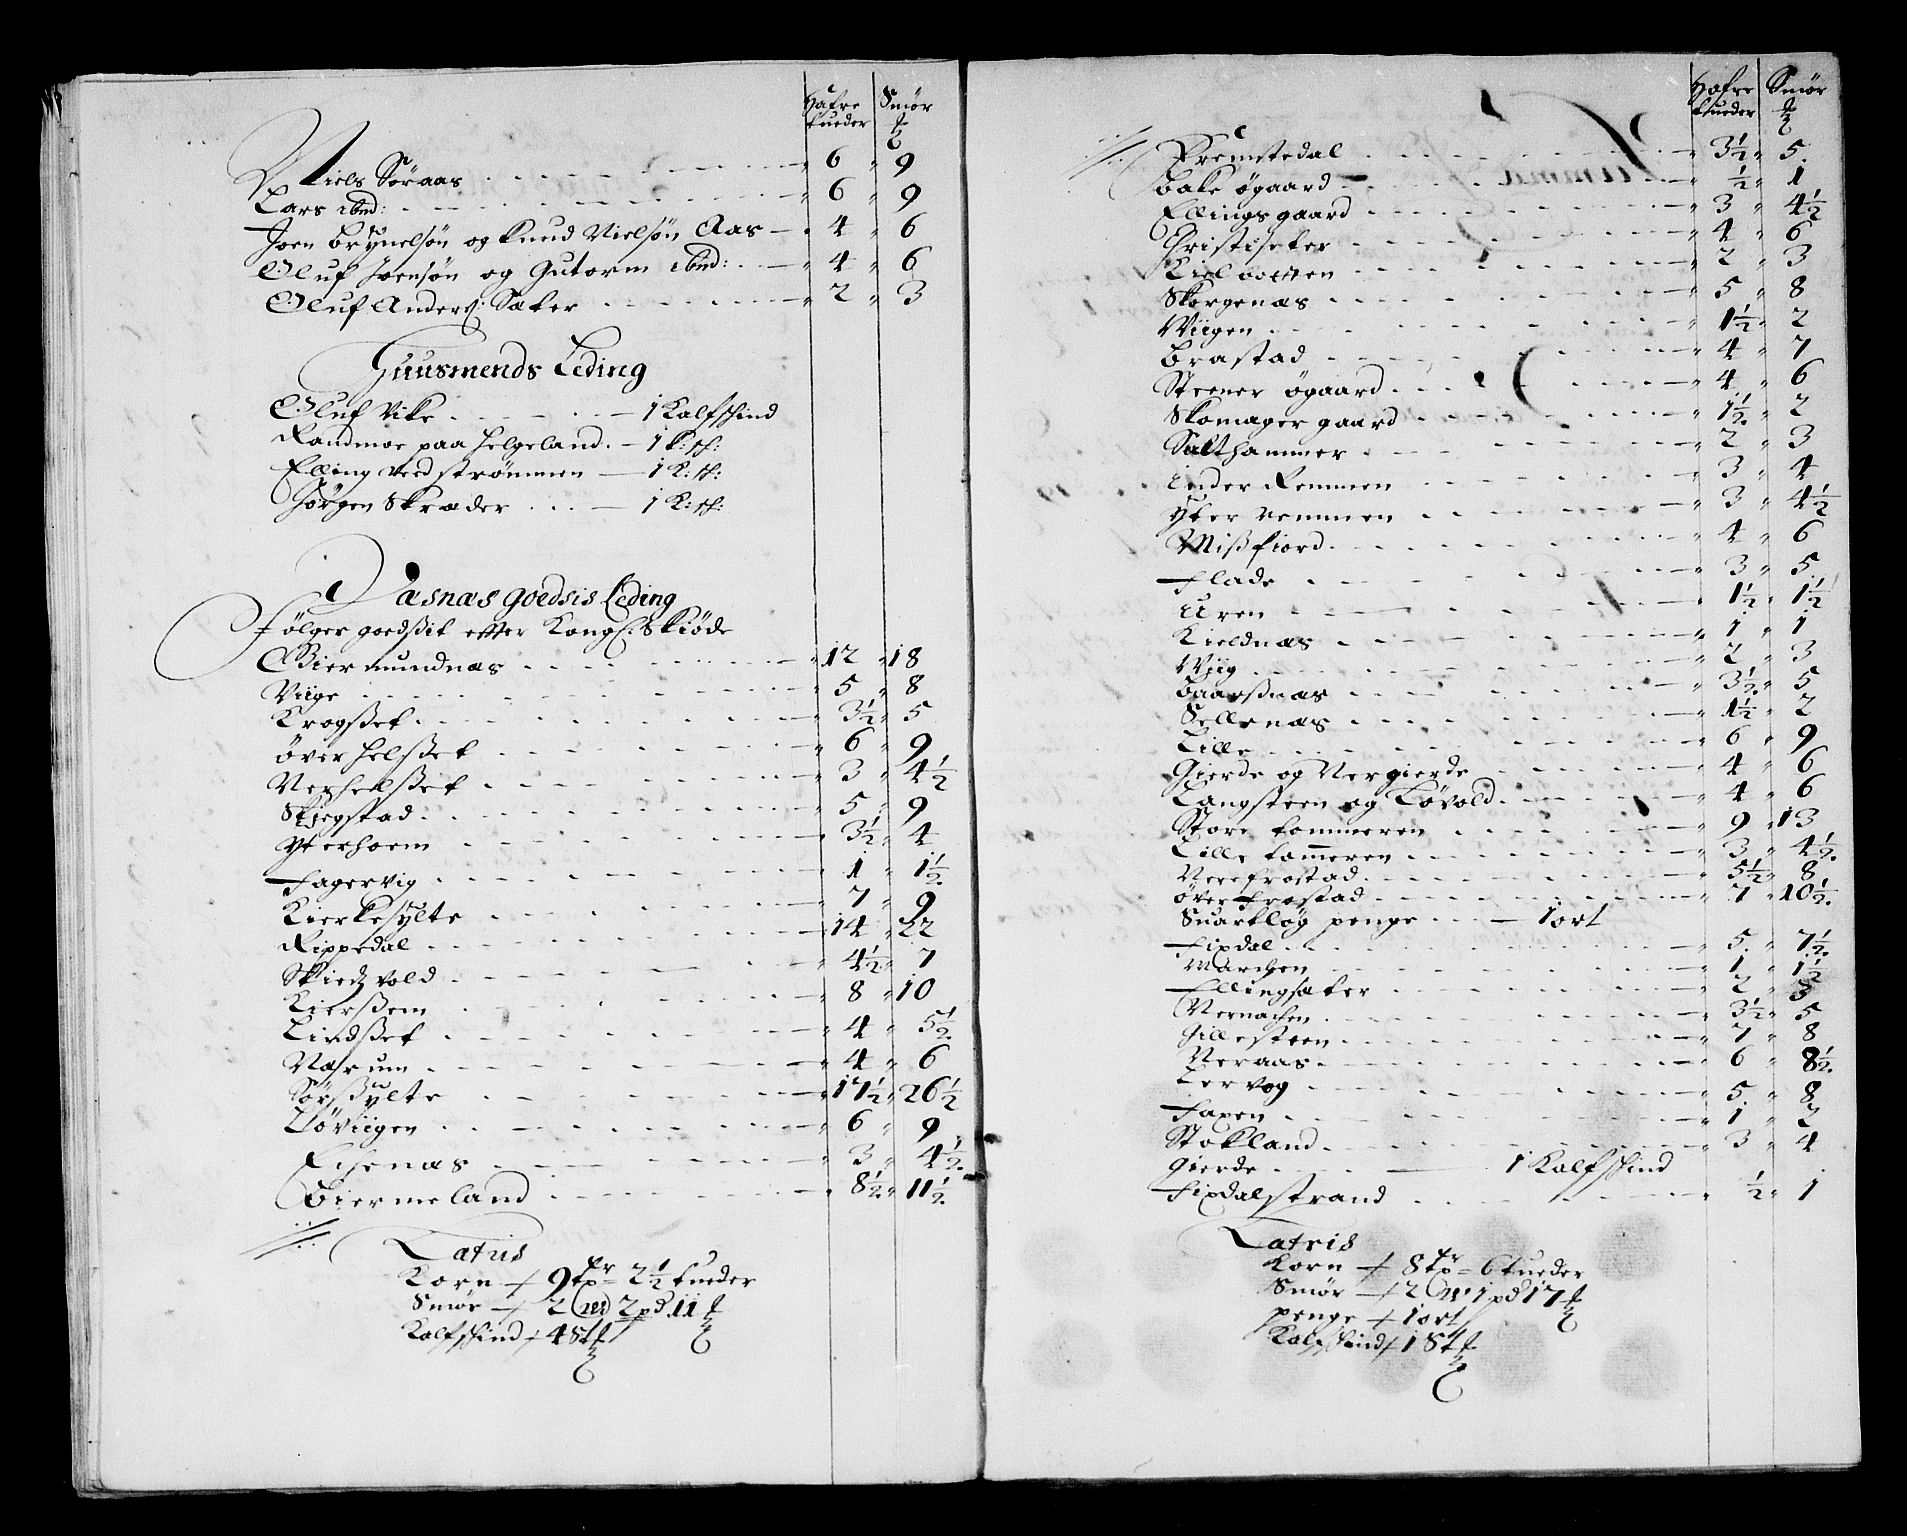 Hafre Smør
tueder ℔
Niels Søraas 6 9
Lars ibm: 6 9
Joen Brynelsøn og Knud Nielsøn Aas 4 6
Oluf Joensøn og Gutorm ibm: 4 6
Oluf Anders: Saker 2 3
Huusmends Leding
Oluf Vike 1 Kalfschind
Randmoe paa Helgeland 1 K: sch:
Elling ved strømmen 1 K: sch:
Jørgen Skræder 1 K: sch:
Væsnæs goedsis Leding
følger goedsset effter Kongl: Skiøde
Giermundnæs 12 18
Viige 5 8
Krogsset 3½ 5
Øver Helsset 6 9
Nerhelsset 3 4½
Skjegstad 5 9
Yterhoem 3½ 4
Fagervig 1 1½
Kierkesylte 7 9
Rippedal 14 22
Skiedzvold 4½ 7
Kierssem 8 10
Lindsset 4 5½
Værum 4 6
Sørssylte 17½ 26½
Løviigen 6 9
Echenæs 3 4½
Biermeland 8½ 11½
Latus
Korn 9 tr 2½ tueder
Smør 2 W 2 pd 11 ℔
Kalfschind 4 St
Hafre Smør
tueder ℔
Fremstedal 3½ 5
Bake øgaard ½ 1
Ellingsgaard 3 4½
Christiseter 4 6
Kielbotten 2 3
Skorgenæs 5 8
Wiigen 1½ 2
Brastad 4 7
Steener øgaard 4 6
Skomager gaard 1½ 2
Salthammer 2 3
inder Remmen 3 4
yter remmen 3 4½
Missfiord 4 6
Flade 3 5
Uren 1½ 1½
Kieldnæs 1 1
Wiig 2 3
Baarssnæs 3½ 5
Sellenæs 1½ 2
Lille 6 9
Gierde og Nergierde 4 6
Langsteen og Løvold 4 6
Store tommeren 9 13
Lille tom̅eren 3 4½
Nerefrostad 5½ 8
Øver frostad 7 10½
Suartløg penge 1 ort
Fixdal 5 7½
Marchen 1 1½
Ellingsæter 2 3
Vernachen 3½ 5
Hillesteen 7 8
Veraas 6 8½
Lervog 5 8
Faxen 1 2
Stokland 3 4
Gierde 1 Kalfschind
Fixdalstrand ½ 1
Latris
Korn 8 tr 6 tueder
Smør 2 W 1 pd 17 ℔
penge 1 ort
Kalfschind 1 St